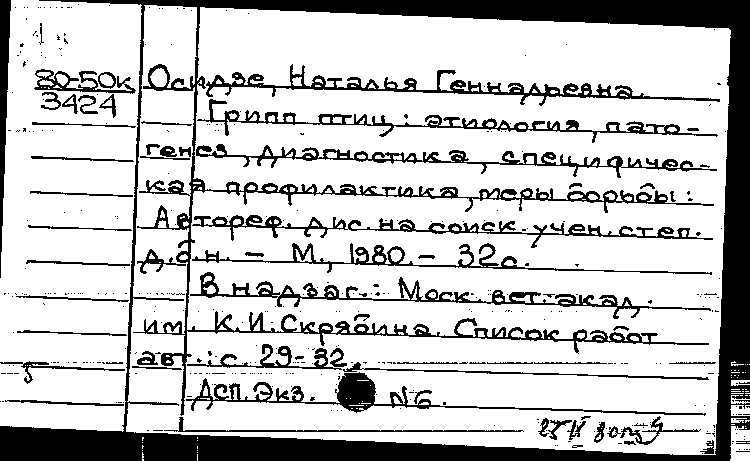 80-50к Осидзе, Наталья Геннадьевна.
3424
Грипп птиц: этиология, пато-
генез, диагностика, специфичес-
кая профилактика, меры борьбы:
Автореф. дис. на соиск. учен. степ.
д.б.н. — М., 1980. — 32с.
В надзаг.: Моск. вет. акад.
им. К.И.Скрябина. Список работ
авт.: с. 29-32.
Дсп. Экз. N6.